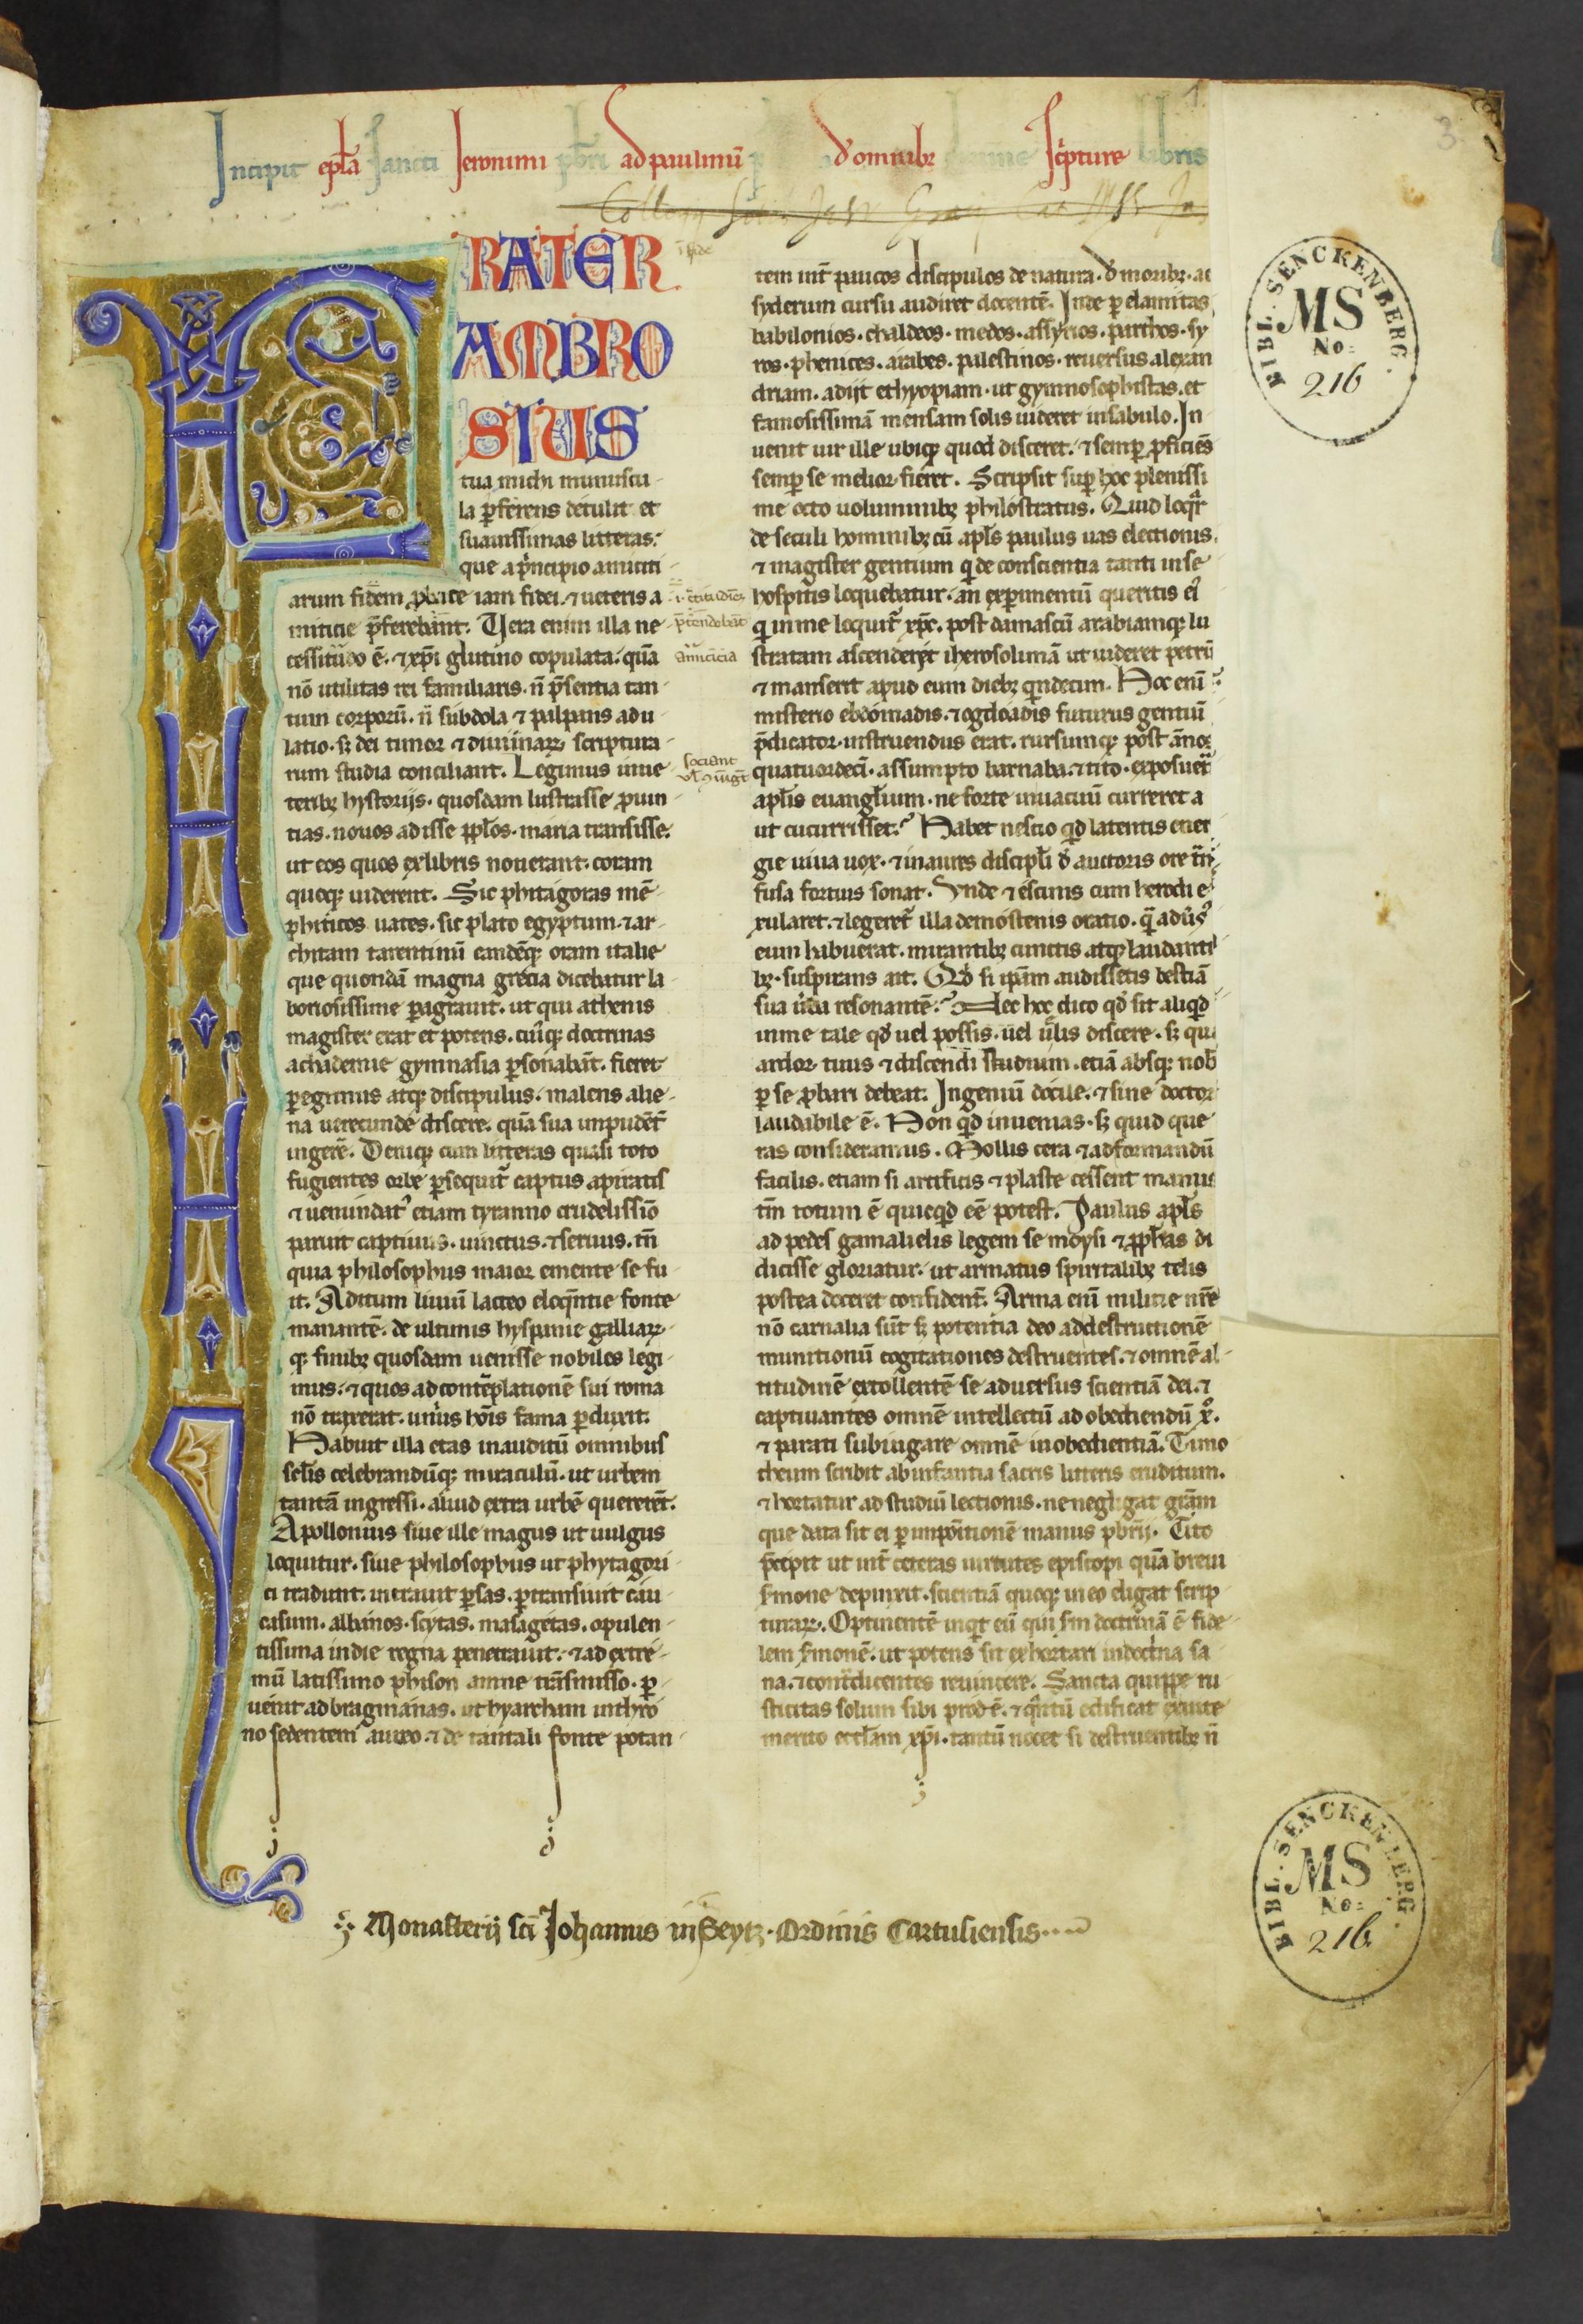 Incipit epl̄a sancti Ieronimi pbr̄i ad paulinū d' omnibꝫ Sc̄pture libris
1
3
FRATER
AMBRO
SIUS
tua michi munuscu-
la p̄ferens detulit et
suauissimas litteras:
que a pͥncipio amiciti-
arum fidem ꝓbate iam fidei ⁊ ueteris a-
miticie p̄ferebant. Uera enim illa ne-
cessitudo ē. ⁊ xp̄i glutino copulata. quā
nō utilitas rei familiaris. n̄ p̄sentia tan-
tum corporū. n̄ subdola ⁊ palpans adu-
latio. sꝫ dei timor ⁊ diuinaꝝ scriptura-
rum studia conciliant. Legimus in ue-
teribꝫ hystoriis. quosdam lustrasse ꝓuin-
tias. nouos adisse ppl̄os. maria transisse.
ut eos quos ex libris nouerant. coram
quoqꝫ uiderent. Sic phitagoras mē-
phiticos uates. sic plato egyptum. ⁊ ar-
chitam tarentinū eandēqꝫ oram italie
que quondā magna grecia dicebatur la-
boriosissime ꝑagrauit. ut qui athenis
magister erat et potens. cuiꝰqꝫ doctrinas
achademie gymnasia ꝑsonabāt. fieret
ꝑegrinus atqꝫ discipulus. malens alie-
na uerecunde discere. quā sua impudēt̄
ingere. Deniqꝫ cum litteras quasi toto
fugientes orbe ꝑsequit̄ captus a piratis
⁊ uenundatꝰ etiam tyranno crudelissīo
paruit captiuus. uinctus. ⁊ seruus. tn̄
quia philosophus maior emente se fu-
it. Ad titum liuiū lacteo eloq̄ntie fonte
manantē. de ultimis hyspanie galliaꝝ-
qꝫ finibꝫ quosdam uenisse nobiles legi-
mus. ⁊ quos ad contēplationē sui roma
nō traxerat. uniꝰ hōis fama ꝑduxit.
Habuit illa etas inauditū omnibus
secl̄is celebrandūqꝫ miraculū. ut urbem
tantā ingressi. aliud extra urbē quererēt.
Apollonius siue ille magus ut uulgus
loquitur. siue philosophus ut phytagori-
ci tradunt. intrauit ꝑsas. ꝑtransiuit cau-
casum. albanos. scytas. masagetas. opulen-
tissima indie regna penetrauit. ⁊ ad extre-
mū latissimo phison amne trāsmisso. ꝑ-
uenit ad bragmanas. ut hyarcham in thro-
no sedentem aureo. ⁊ de tantali fonte potan-
i. c̄titudīes
p̄tendebāt
amicicia
sociant
ul̄ ɔiūgt̄
tem int̄ paucos discipulos de natura. d' moribꝫ. ac
syderum cursu audiret docentē. Inde ꝑ elamitas
babilonios. chaldeos. medos. assyrios. parthos. sy
ros. phenices. arabes. palestinos. reuersus alexan
driam. adiit ethyopiam. ut gymnosophistas. et
famosissimā mensam solis uideret in sabulo. In
uenit uir ille ubiqꝫ quod disceret. ⁊ semꝑ ꝓficiēs
semꝑ se melior fieret. Scripsit suꝑ hoc plenissi
me octo uoluminibꝫ philostratus. Quid loqr̄
de seculi hominibꝫ cū apl̄s paulus uas electionis.
⁊ magister gentium q̄ de conscientia tanti in se
hospitis loquebatur. an experimentū queritis eiꝰ
qͥ in me loquit̄ xp̄c. post damascū arabiamqꝫ lu
stratam ascenderet iherosolimā ut uideret petrū
⁊ manserit apud eum diebꝫ qͥndecim. Hoc enī
misterio ebdomadis. ⁊ ogdoadis futurus gentiū
p̄dicator. instruendus erat. rursumqꝫ post annos
quatuordecī. assumpto barnaba. ⁊ tito. exposuerͭ
apl̄is euangl̄ium. ne forte in uacuū curreret a
ut cucurrisset. Habet nescio qd̄ latentis ener
gie uiua uox. ⁊ in aures discipl̄i d' auctoris ore tn̄s
fusa fortius sonat. Unde ⁊ eschinis cum herodi e
xularet. ⁊ legeret̄ illa demostenis oratio. q̄ aduꝰsꝰ
eum habuerat. mirantibꝫ cunctis atqꝫ laudanti
bꝫ. suspirans ait. Qd̄ si ip̄am audissetis bestiā
sua ūba resonantē. Nec hoc dico qd̄ sit aliqd̄
in me tale qd̄ uel possis. uel uelis discere. sꝫ qu
ardor tuus ⁊ discendi studium. etiā absqꝫ nob
ꝑ se ꝓbari debeat. Ingeniū docile. ⁊ sine doctor
laudabile ē. Non qd̄ inuenias. sꝫ quid que
ras consideramus. Mollis cera ⁊ ad formandū
facilis. etiam si artificis ⁊ plaste cessent manus
tn̄ totum ē quicqd̄ eē potest. Paulus apl̄s
ad pedes gamalielis legem se moysi ⁊ ꝓph̄as di
dicisse gloriatur. ut armatus spiritalibꝫ telis
postea doceret confident̄. Arma enī militie nr̄e
nō carnalia sūt sꝫ potentia deo ad destructionē
munitionū cogitationes destruentes. ⁊ omnē al-
titudinē extollentē se aduersus scientiā dei. ⁊
captiuantes omnē intellectū ad obediendū xͦ.
⁊ parati subiugare omnē inobedientiā. Timo
theum scribit ab infantia sacris litteris eruditum.
⁊ hortatur ad studiū lectionis. ne negligat grām
que data sit ei ꝑ impoītionē manus pbr̄ii. Tito
p̄cepit ut int̄ ceteras uirtutes episcopi quā breui
s̄mone depinxit. scientiā quoqꝫ in eo eligat scrip
turaꝝ. Optinentē inqͥt eū qui sm̄ doctrinā ē fide-
lem s̄monē. ut potens sit exhortari in doctͥna sa-
na. ⁊ contͣdicentes reuincere. Sancta quippe ru-
sticitas solum sibi prod ē. ⁊ qͣntū edificat ex uite
merito eccl̄am xp̄i. tantū nocet si destruentibꝫ n̄
Monasterij sci Johannis in Seytz. Ordinis Cartusiensis
BIBL. SENCKENBERG.
MS
No:
216
BIBL. SENCKENBERG.
MS
No:
216